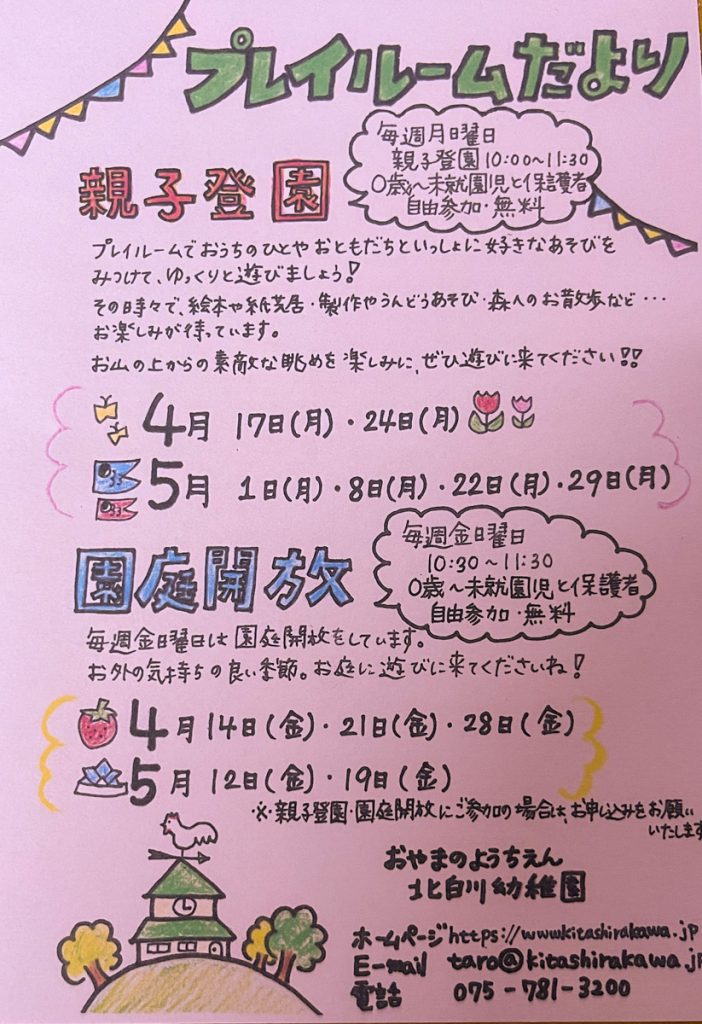 プレイルームだより
毎週月曜日
親子登園10:00〜11:30
0歳〜未就園児と保護者
自由参加・無料
親子登園
プレイルームでおうちのひとやおともだちといっしょに好きなあそびを
みつけて、ゆっくりと遊びましょう!
その時々で、絵本や紙芝居・製作やうんどうあそび・森へのお散歩など・・・
お楽しみが待っています。
お山の上からの素敵な眺めを楽しみに、ぜひ遊びに来てください!!
4月 17日(月)・24日(月)
5月 1日(月)・8日(月)・22日(月)・29日(月)
毎週金曜日
10:30〜11:30
0歳〜未就園児と保護者
自由参加・無料
園庭開放
毎週金曜日は園庭開放をしています。
お外の気持ちの良い季節。お庭に遊びに来てくださいね!
4月 14日(金)・21日(金)・28日(金)
5月 12日(金)・19日(金)
※親子登園・園庭開放にご参加の場合は、お申し込みをお願い
いたします
おやまのようちえん
北白川幼稚園
ホームページ https://www.kitashirakawa.jp
E-mail taro@kitashirakawa.jp
電話 075-781-3200